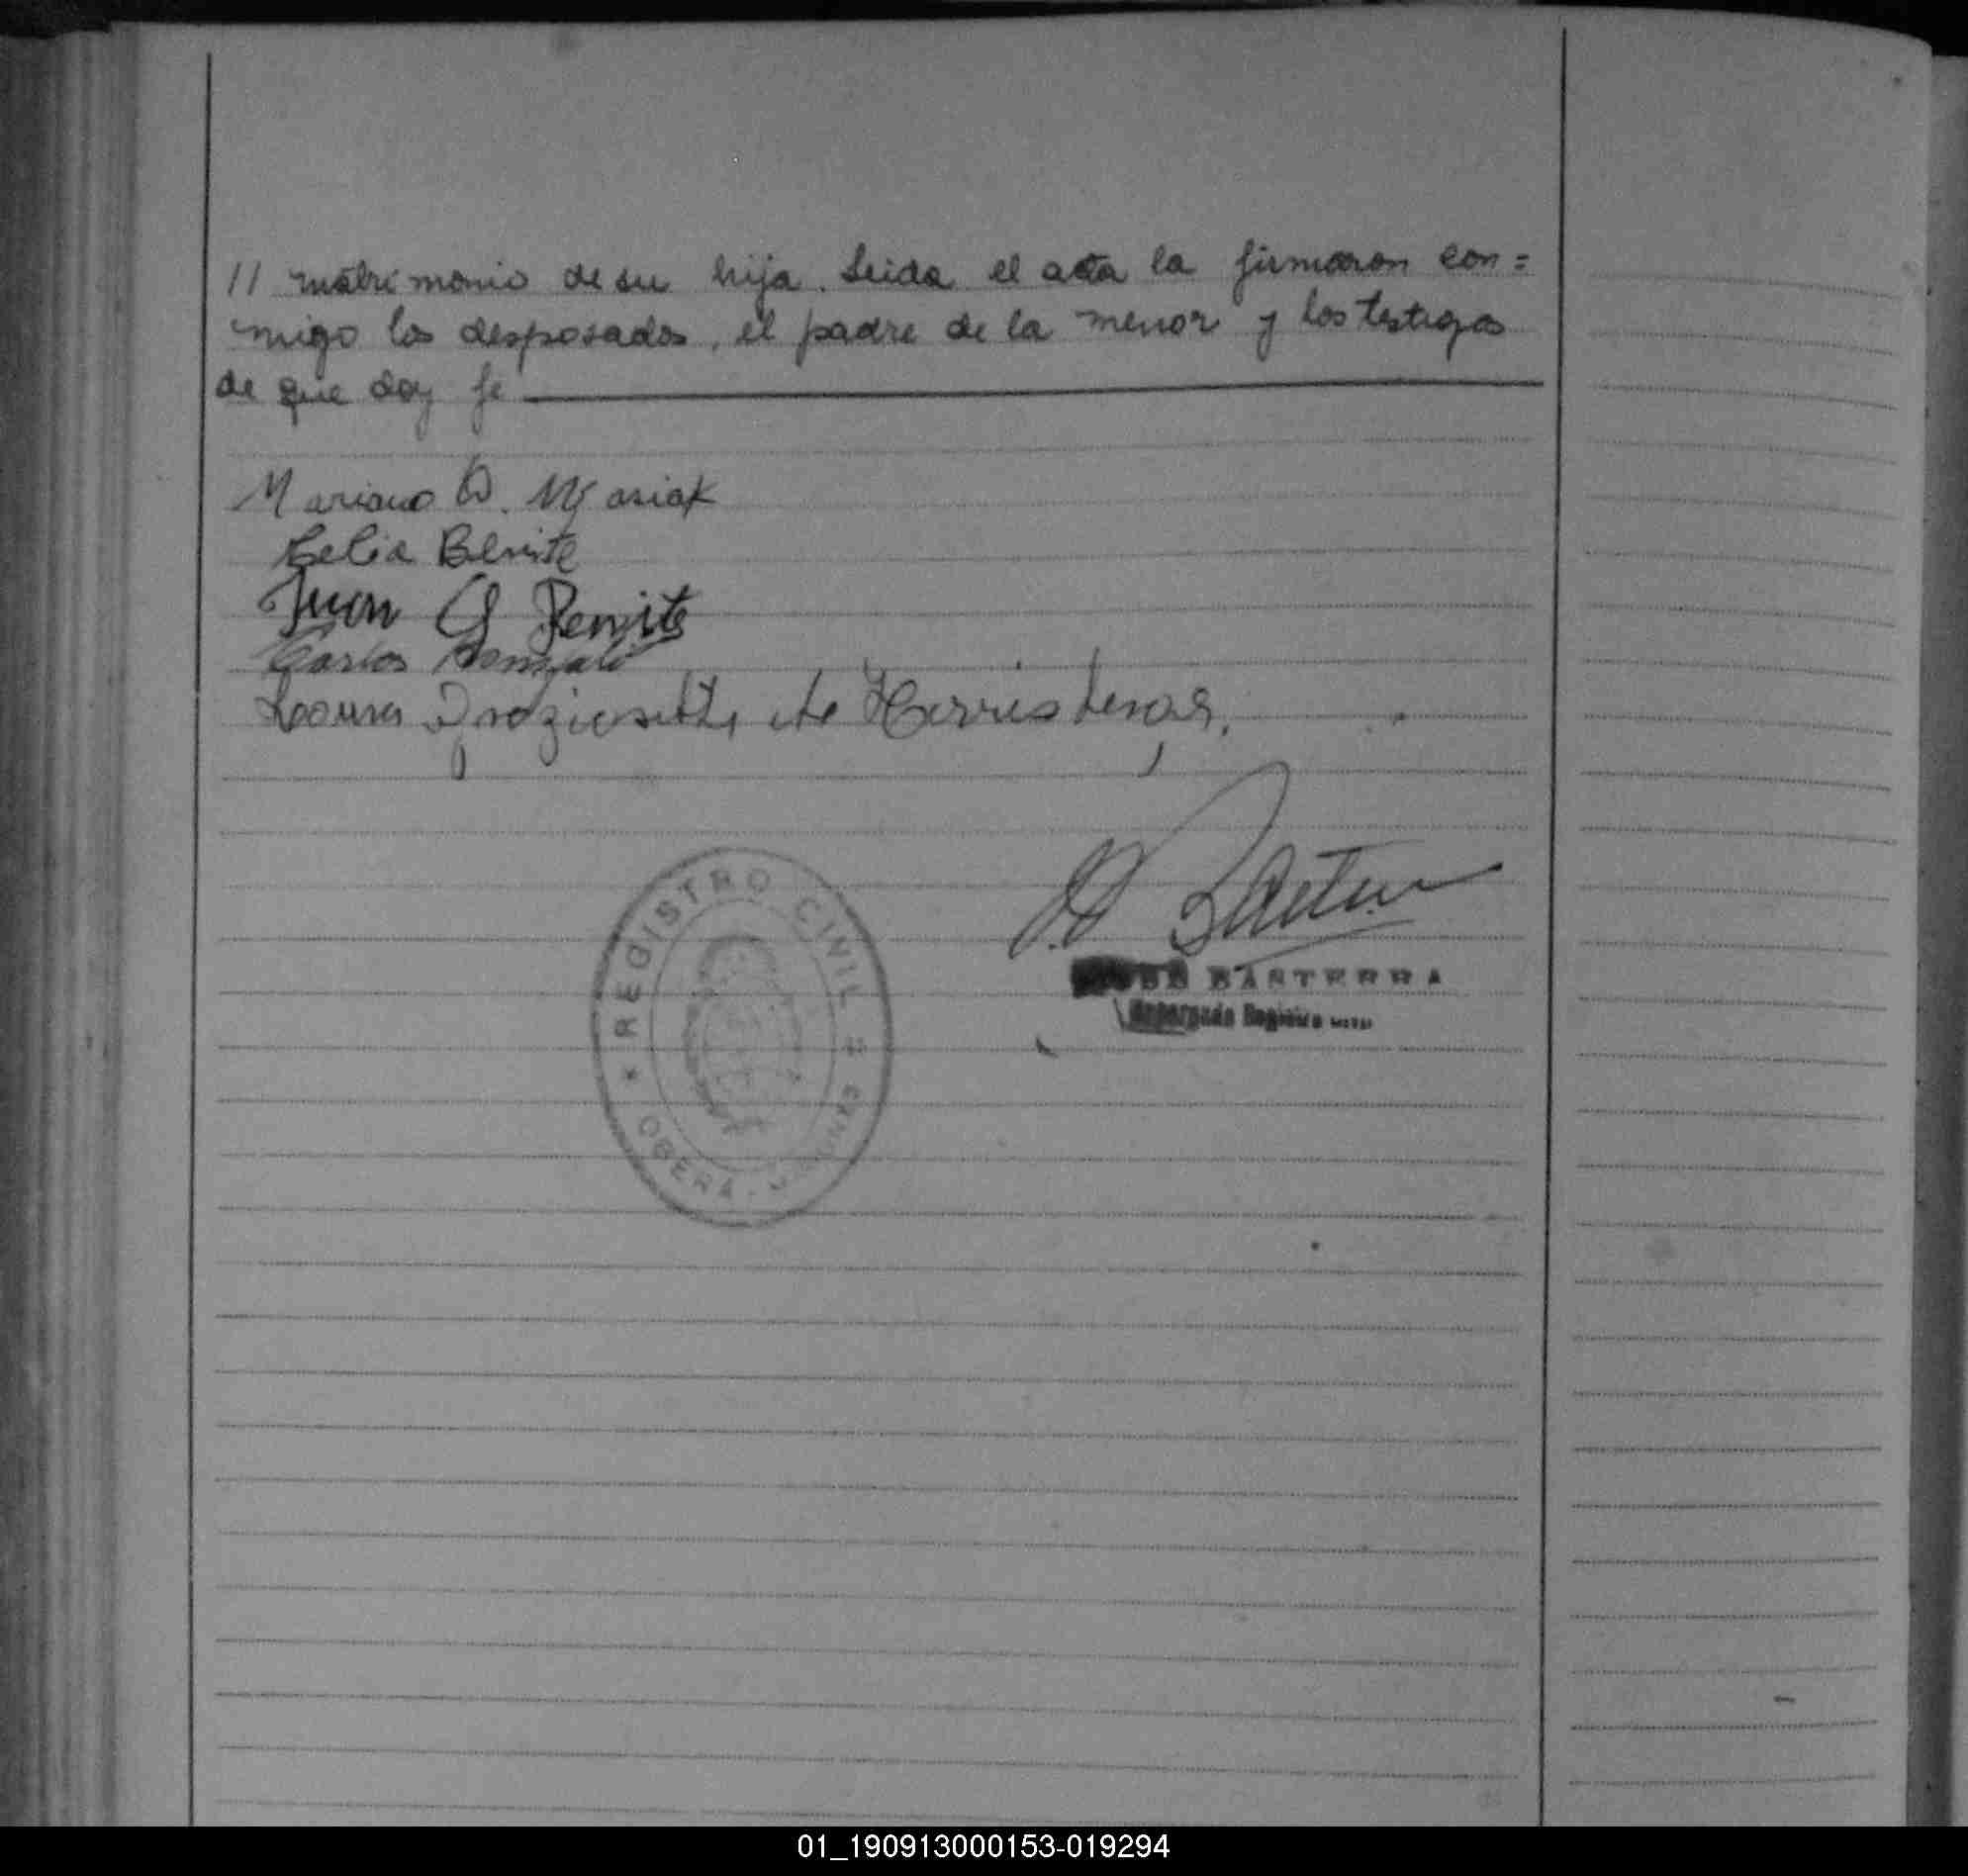 // matrimonio de su hija. Leida el acta la firmaron con=
migo los desposados, el padre de la menor y los testigos
de que doy fe
Mariano
Celia Benite
Juan Benite
Carlos
Laura de
REGISTRO CIVIL
OBERA
BASTERRA
Encargado Registro Civil
01_190913000153-019294